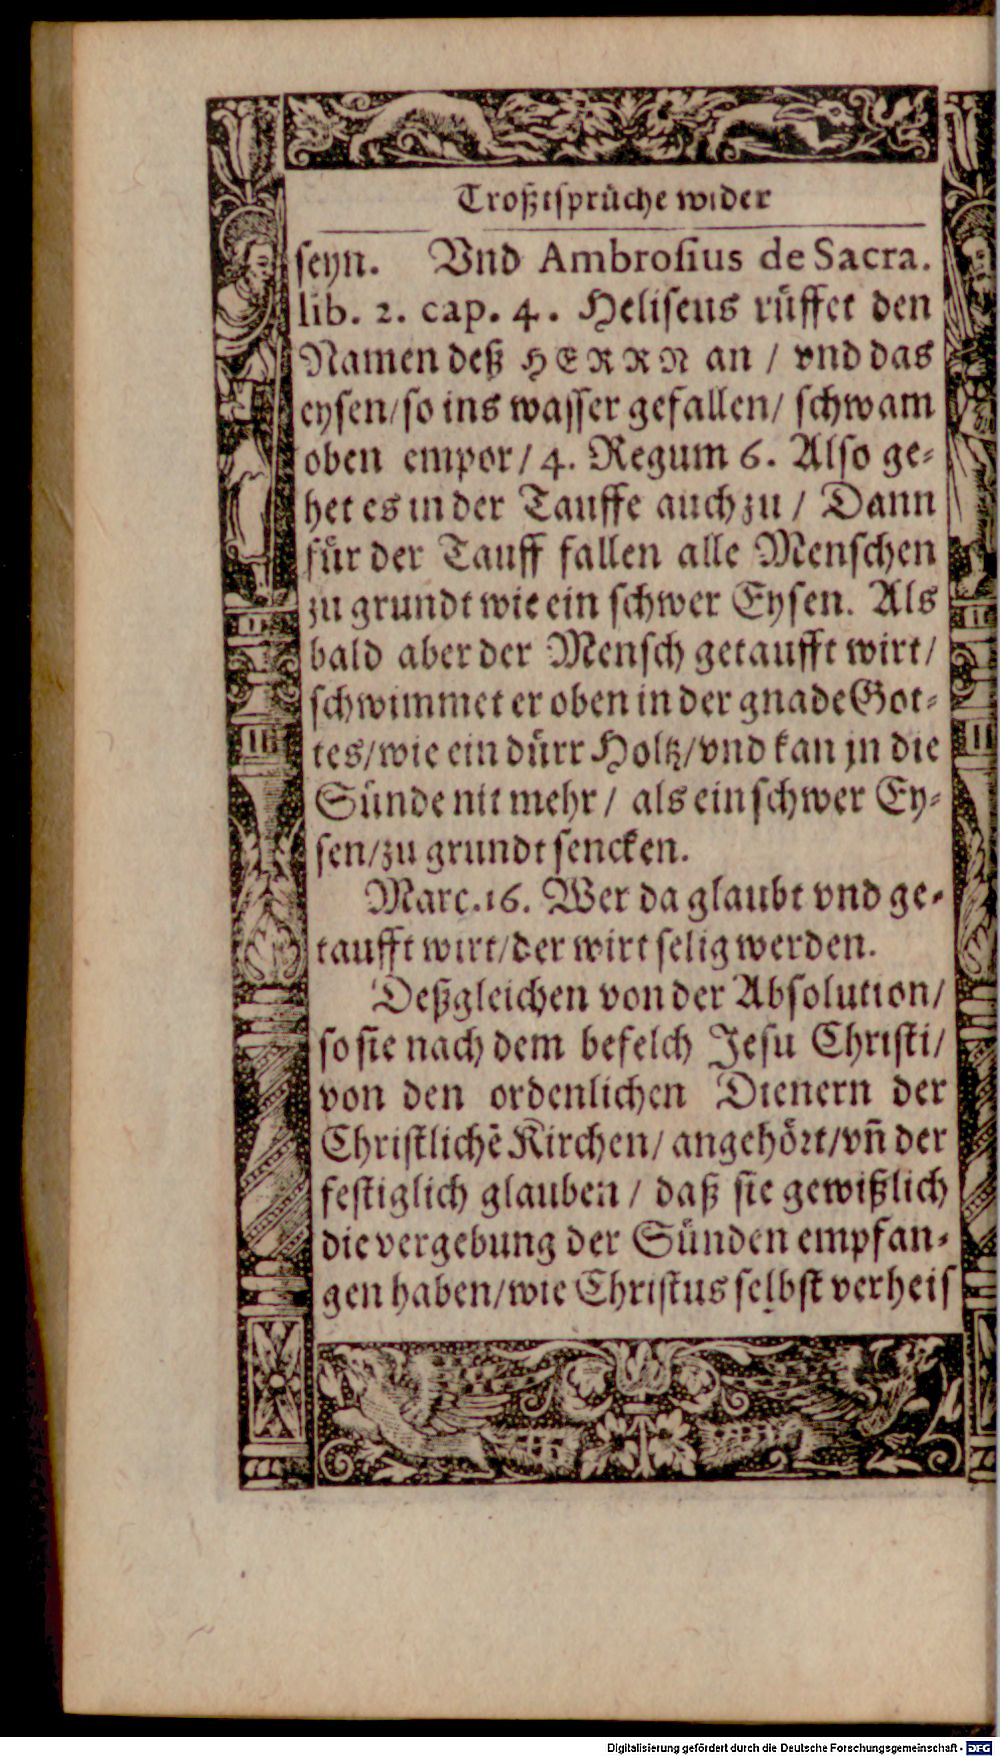 Troßtsprüche wider
seyn. Vnd Ambrosius de Sacra.
lib. 2. cap. 4. Heliseus rüffet den
Namen deß HERRN an / vnd das
eysen/so ins wasser gefallen/ schwam
oben empor/ 4. Regum 6. Also ge-
het es in der Tauffe auch zu / Dann
für der Tauff fallen alle Menschen
zu grundt wie ein schwer Eysen. Als
bald aber der Mensch getaufft wirt/
schwimmet er oben in der gnade Got-
tes/wie ein dürr Holtz/vnd kan jn die
Sünde nit mehr / als ein schwer Ey-
sen/zu grundt sencken.
Marc.16. Wer da glaubt vnd ge-
taufft wirt/der wirt selig werden.
Deßgleichen von der Absolution/
so sie nach dem befelch Jesu Christi/
von den ordenlichen Dienern der
Christlichē Kirchen/ angehört/vñ der
festiglich glauben / daß sie gewißlich
die vergebung der Sünden empfan-
gen haben/wie Christus selbst verheis
Digitalisierung gefördert durch die Deutsche Forschungsgemeinschaft - DFG